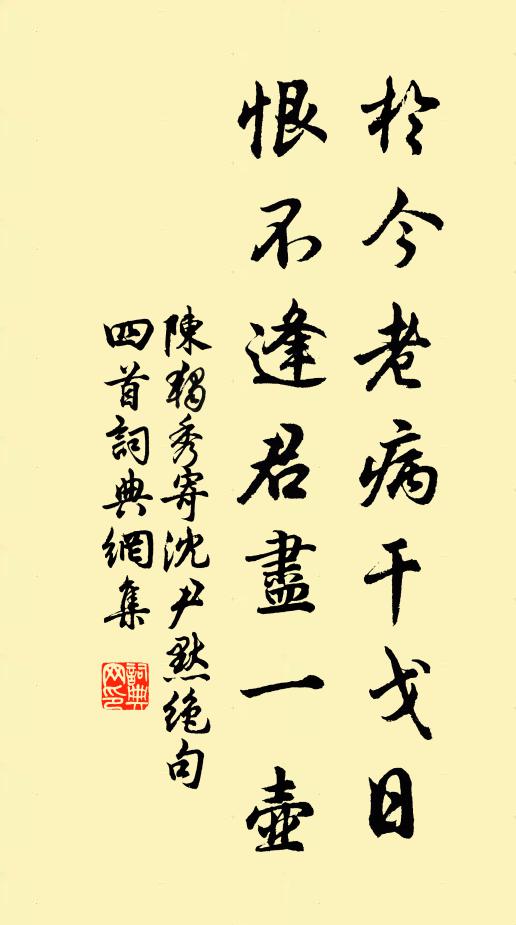 於今老病干戈日
恨不逢君盡一壺
陳獨秀寄沈尹默絕句
四首詞典網集
詞典
网印